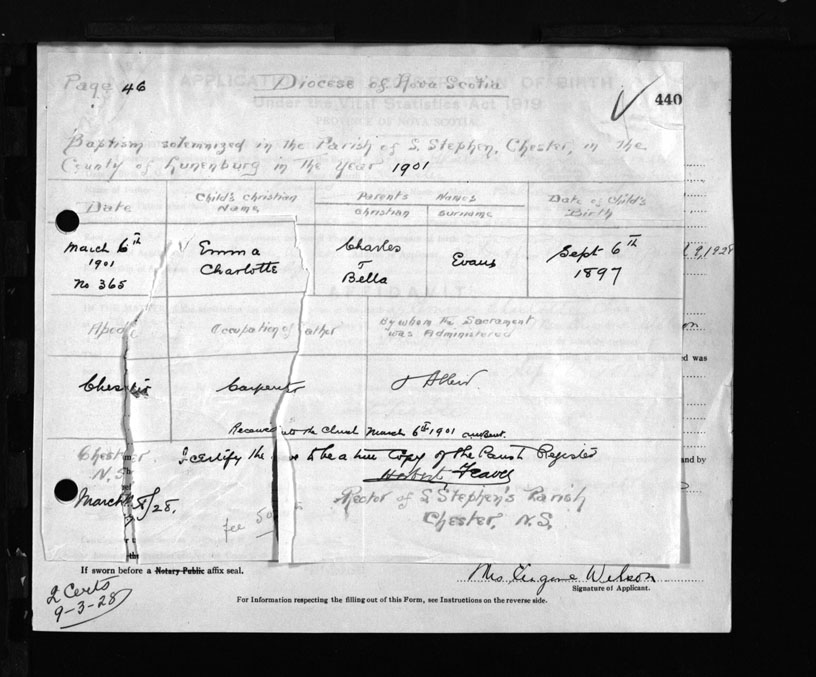 Page 46
Diocese of Nova Scotia
APPLICATION FOR REGISTRATION OF BIRTH
Under the Vital Statistics Act 1919
PROVINCE OF NOVA SCOTIA
440
Baptism solemnized in the Parish of S. Stephen, Chester, in the
County of Lunenburg in the Year 1901
Date
Child's Christian Name
Parents Names
Christian
Surname
Date of Child's Birth
March 6th
1901
No 365
Emma
Charlotte
Charles
Bella
Evans
Sept 6th
1897
9, 1928
AFFIDAVIT
Abode
Occupation of Father
By whom the Sacrament
was Administered
d was
Chester
Carpenter
Received into the Church March 6th 1901
Chester
N.S.
I certify the to be a true Copy of the Parish Register
and by
March /28.
Rector of S. Stephen's Parish
Chester, N.S.
fee 50
the
If sworn before a Notary Public affix seal.
Mrs Eugene Wilson
Signature of Applicant.
2 Certs
9-3-28
For Information respecting the filling out of this Form, see Instructions on the reverse side.